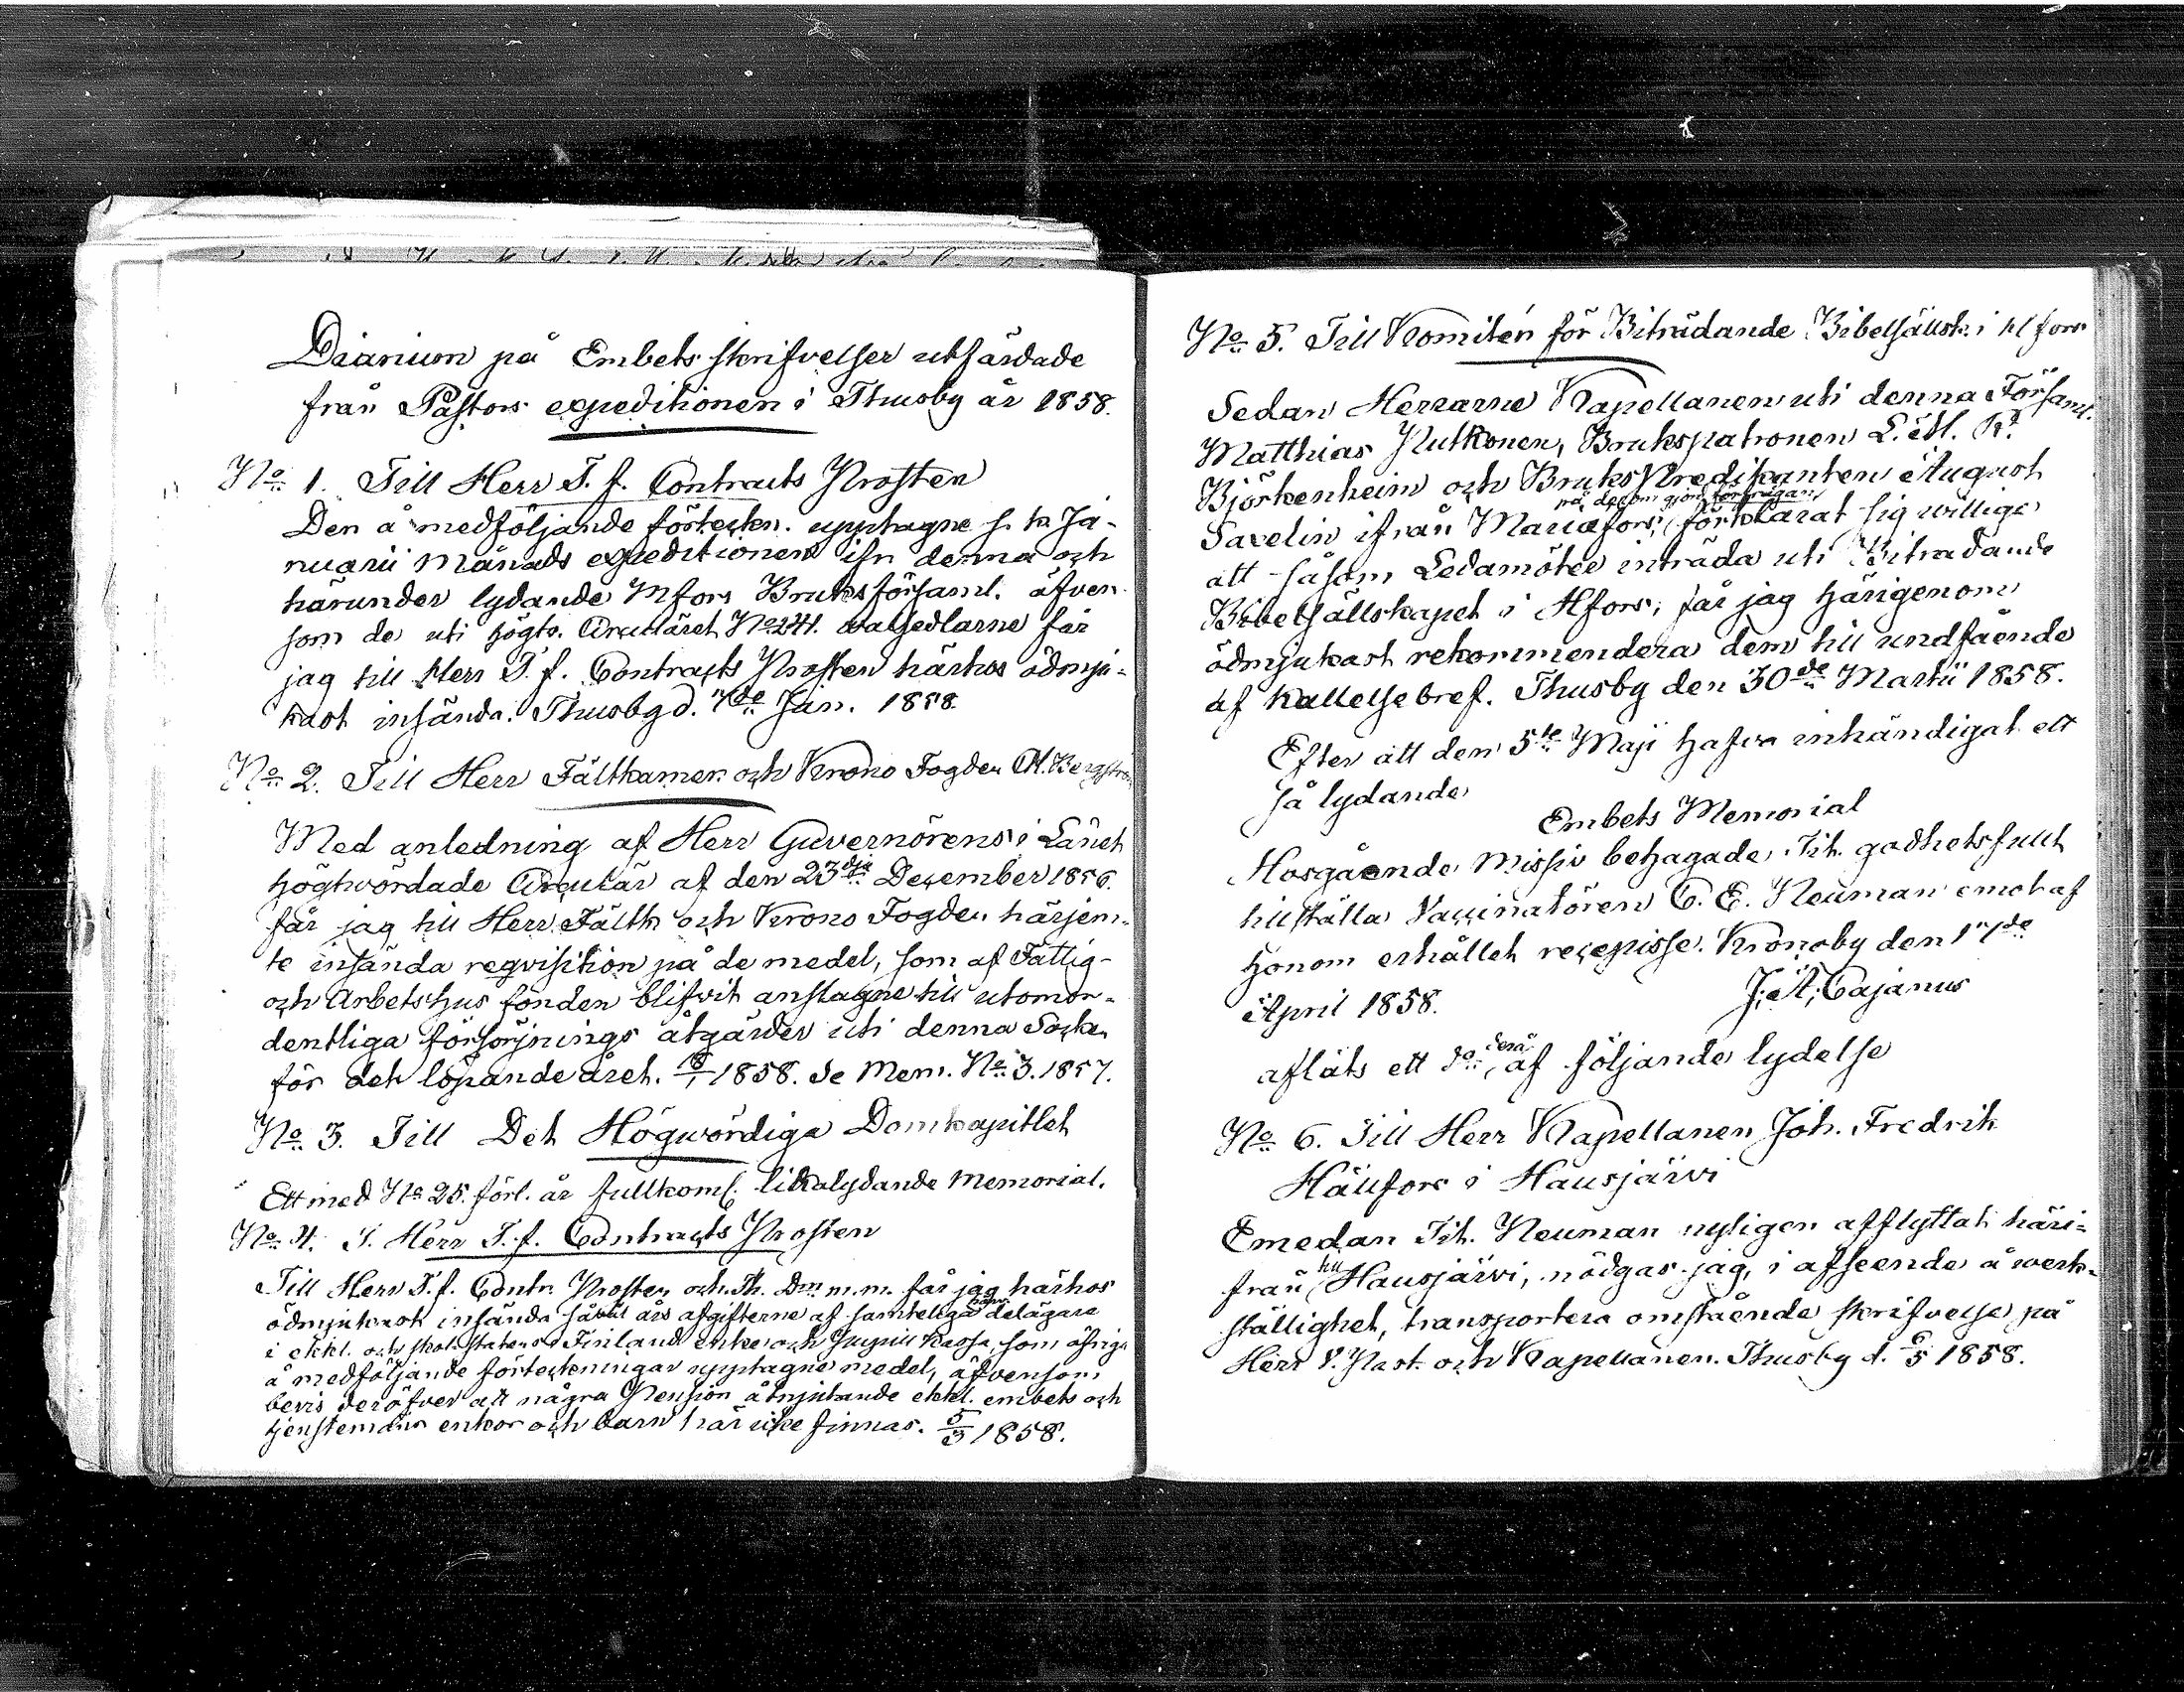 Diarium på Embets skrifvelser utfärdade
från Pastors expeditionen i Thusby år 1858.
No 1. Till Herr T. f. Contracts Prosten
Den å medföljande förteckn. upptagne s. k. Ja-
nuarii Månads expeditionen ifr. denna och
härunder lydande Mfors Bruksförsaml. äfven
som de uti högtv. Circuläret No 241. valsedlarne får
jag till Herr T. f. Contracts Prosten härhos ödmju-
kast insända. Thusby d. Jan. 1858.
No 2. Till Herr Fältkamer. och Krono Fogden Bergström
Med anledning af Herr Guvernörens i Länet
högtvördade Circulär af den 23dje December 1856.
får jag till Herr Fältk. och Krono Fogden härjem-
te insända reqvisition på de medel, som af Fattig-
och Arbetshus fonden blifvit anslagne till utomor-
dentliga försörjnings åtgärder uti denna Socken
för det löpande året. 18/1 1858. se Mem. No 3. 1857.
No 3. Till Det Högwördiga Domkapitlet
Ett med No 25. förl. år fullkoml. likalydande Memorial.
No 4. T. Herr T. f. Contracts Prosten
Till Herr T. f. Contr. Prosten och Th. Dr m. m. får jag härhos
ödmjukast insända såväl års afgifterne af samtelige delägare
i ekkl. och skol. statens i Finland enke och Pupill Kassa, som öfrige
å medföljande förteckningar upptagne medel, äfvensom
bevis deröfver att några Pension åtnjutande ekkl. embets och
tjenstemäns enkor och barn här icke finnas. 5/3 1858.
No 5. Till Komitén för Biträdande Bibelsällsk. i Hfors
Sedan Herrarne Kapellanen uti denna Församl.
Matthias Putkonen, Brukspatronen L. M. Rr
Björkenheim och BruksPredikanten August
på derom gjord förfrågan
Savelin ifrån Mariæfors, förklarat sig willige
att såsom Ledamöter inträda uti Biträdande
Bibelsällskapet i Hfors; får jag härigenom
ödmjukast rekommendera dem till undfående
af Kallelsebref. Thusby den 30de Martii 1858.
Efter att den 5te Maji hafva inhändigat ett
så lydande
Embets Memorial
Hosgående Missiv behagade Tit. godhetsfullt
tillställa Vaccinatören C. E. Neuman emot af
honom erhållet recepisse. Kronoby den
April 1858. J. A. Cajanus
afläts ett do derå af följande lydelse
No 6. Till Herr Kapellanen Joh. Fredrik
Hällfors i Hausjärvi
Emedan Tit. Neuman nyligen afflyttat häri-
från till Hausjärvi, nödgas jag, i afseende å werk-
ställighet, transportera omstående skrifvelse på
Herr V. Past. och Kapellanen. Thusby d. 6/5 1858.